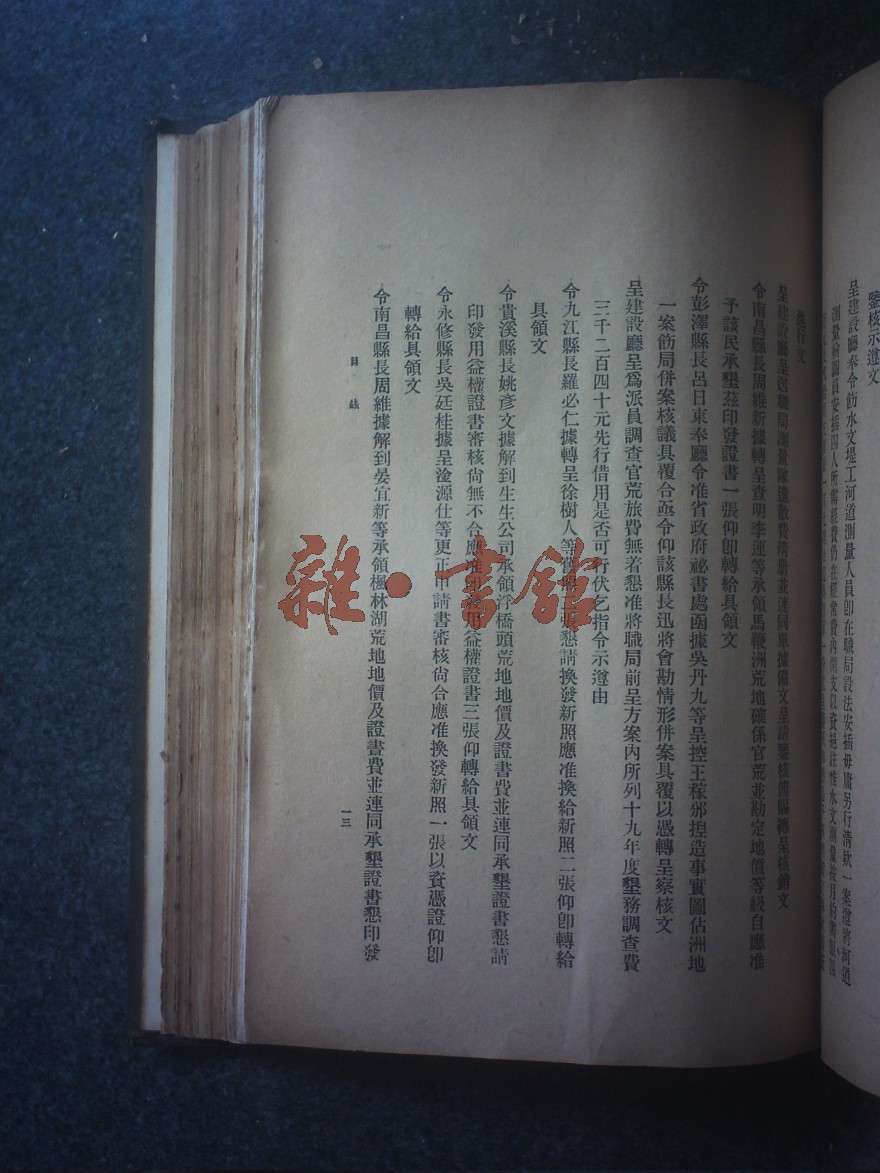 鑒核示遵文
呈建設廳奉令飭水文堤工河道測量人員卽在職局設法安插毋庸另行淸欵一案遵將河道
測量繪圖員安插四人所需經費仍在經常費內開支以資挹注性水文測量
進行文
呈建設廳呈送職局測量隊遣散費淸册並連同單據備文呈請鑒核俯賜轉呈核銷文
令南昌縣長周維新據轉呈查明李運等承領馬鞭洲荒地確係官荒並勘定地價等級自應准
予該民承墾茲印發證書一張仰卽轉給具領文
令彭澤縣長呂日東奉廳令准省政府祕書處函據吳丹九等呈控王稼邠揑造事實圖佔洲地
一案飭局併案核議具覆合亟令仰該縣長迅將會勘情形併案具覆以憑轉呈察核文
呈建設廳呈爲派員調查官荒旅費無着懇准將職局前呈方案內所列十九年度墾務調查費
三千二百四十元先行借用是否可行伏乞指令示遵由
令九江縣長羅必仁據轉呈徐樹人等舊照二張懇請換發新照應准換給新照二張仰卽轉給
具領文
令貴溪縣長姚彥文據解到生生公司承領浮橋頭荒地地價及證書費並連同承墾證書懇請
印發用益權證書審核尙無不合應准印發用益權證書三張仰轉給具領文
令永修縣長吳廷桂據呈淦源仕等更正申請書審核尙合應准換發新照一張以資憑證仰卽
轉給具領文
令南昌縣長周維據解到晏宜新等承領楓林湖荒地地價及證書費並連同承墾證書懇印發
目錄
一三
雜·書館